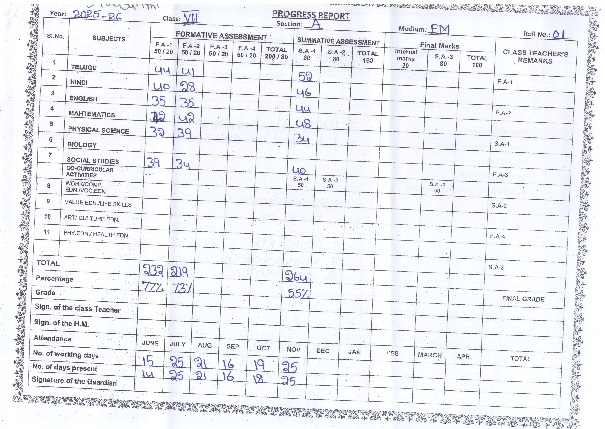 PROGRESS REPORT
Year: 2025-26 Class: VII Section: A Medium: EM Roll No.: 01
Sl.No. SUBJECTS FORMATIVE ASSESSMENT SUMMATIVE ASSESSMENT Final Marks CLASS TEACHER'S REMARKS
F.A-1 50/20 F.A-2 50/20 F.A-3 50/20 F.A-4 50/20 TOTAL 200/80 S.A-1 80 S.A-2 80 TOTAL 160 Internal marks 20 S.A-3 80 TOTAL 100
1 TELUGU 44 41 52 F.A-1
2 HINDI 40 28 46
3 ENGLISH 35 35 44 F.A-2
4 MATHEMATICS 42 42 48
5 PHYSICAL SCIENCE 32 39 34 S.A-1
6 BIOLOGY
7 SOCIAL STUDIES 39 34 40 F.A-3
CO-CURRICULAR ACTIVITIES S.A-1 50 S.A-2 50 S.A-3
8 WORK/COMP. EDN./VOC.EDN.
9 VALUE EDN./LIFE SKILLS S.A-2
10 ART/ CULTURE EDN.
11 PHY.EDN./HEALTH EDN. F.A-4
TOTAL 232 219 264 S.A-3
Percentage 77% 73% 55%
Grade FINAL GRADE
Sign. of the class Teacher
Sign. of the H.M.
Attendance JUNE JULY AUG SEP OCT NOV DEC JAN FEB MARCH APR. TOTAL
No. of working days 15 25 21 16 19 25
No. of days present 14 25 21 16 18 25
Signature of the Guardian